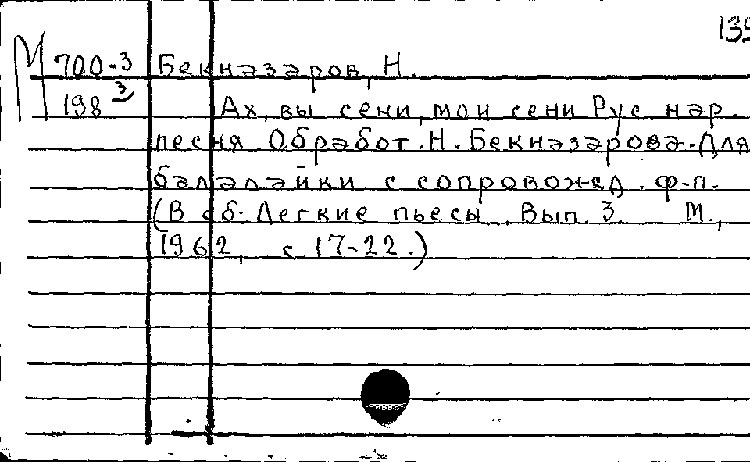 135
М 700-3 Бекназаров, Н.
198 3 Ах вы сени, мои сени Рус нар.
песня Обработ. Н. Бекназарова. Для
балалайки с сопровожед. ф-п.
(В сб. Легкие пьесы. Вып. 3. М.,
1962, с 17-22.)